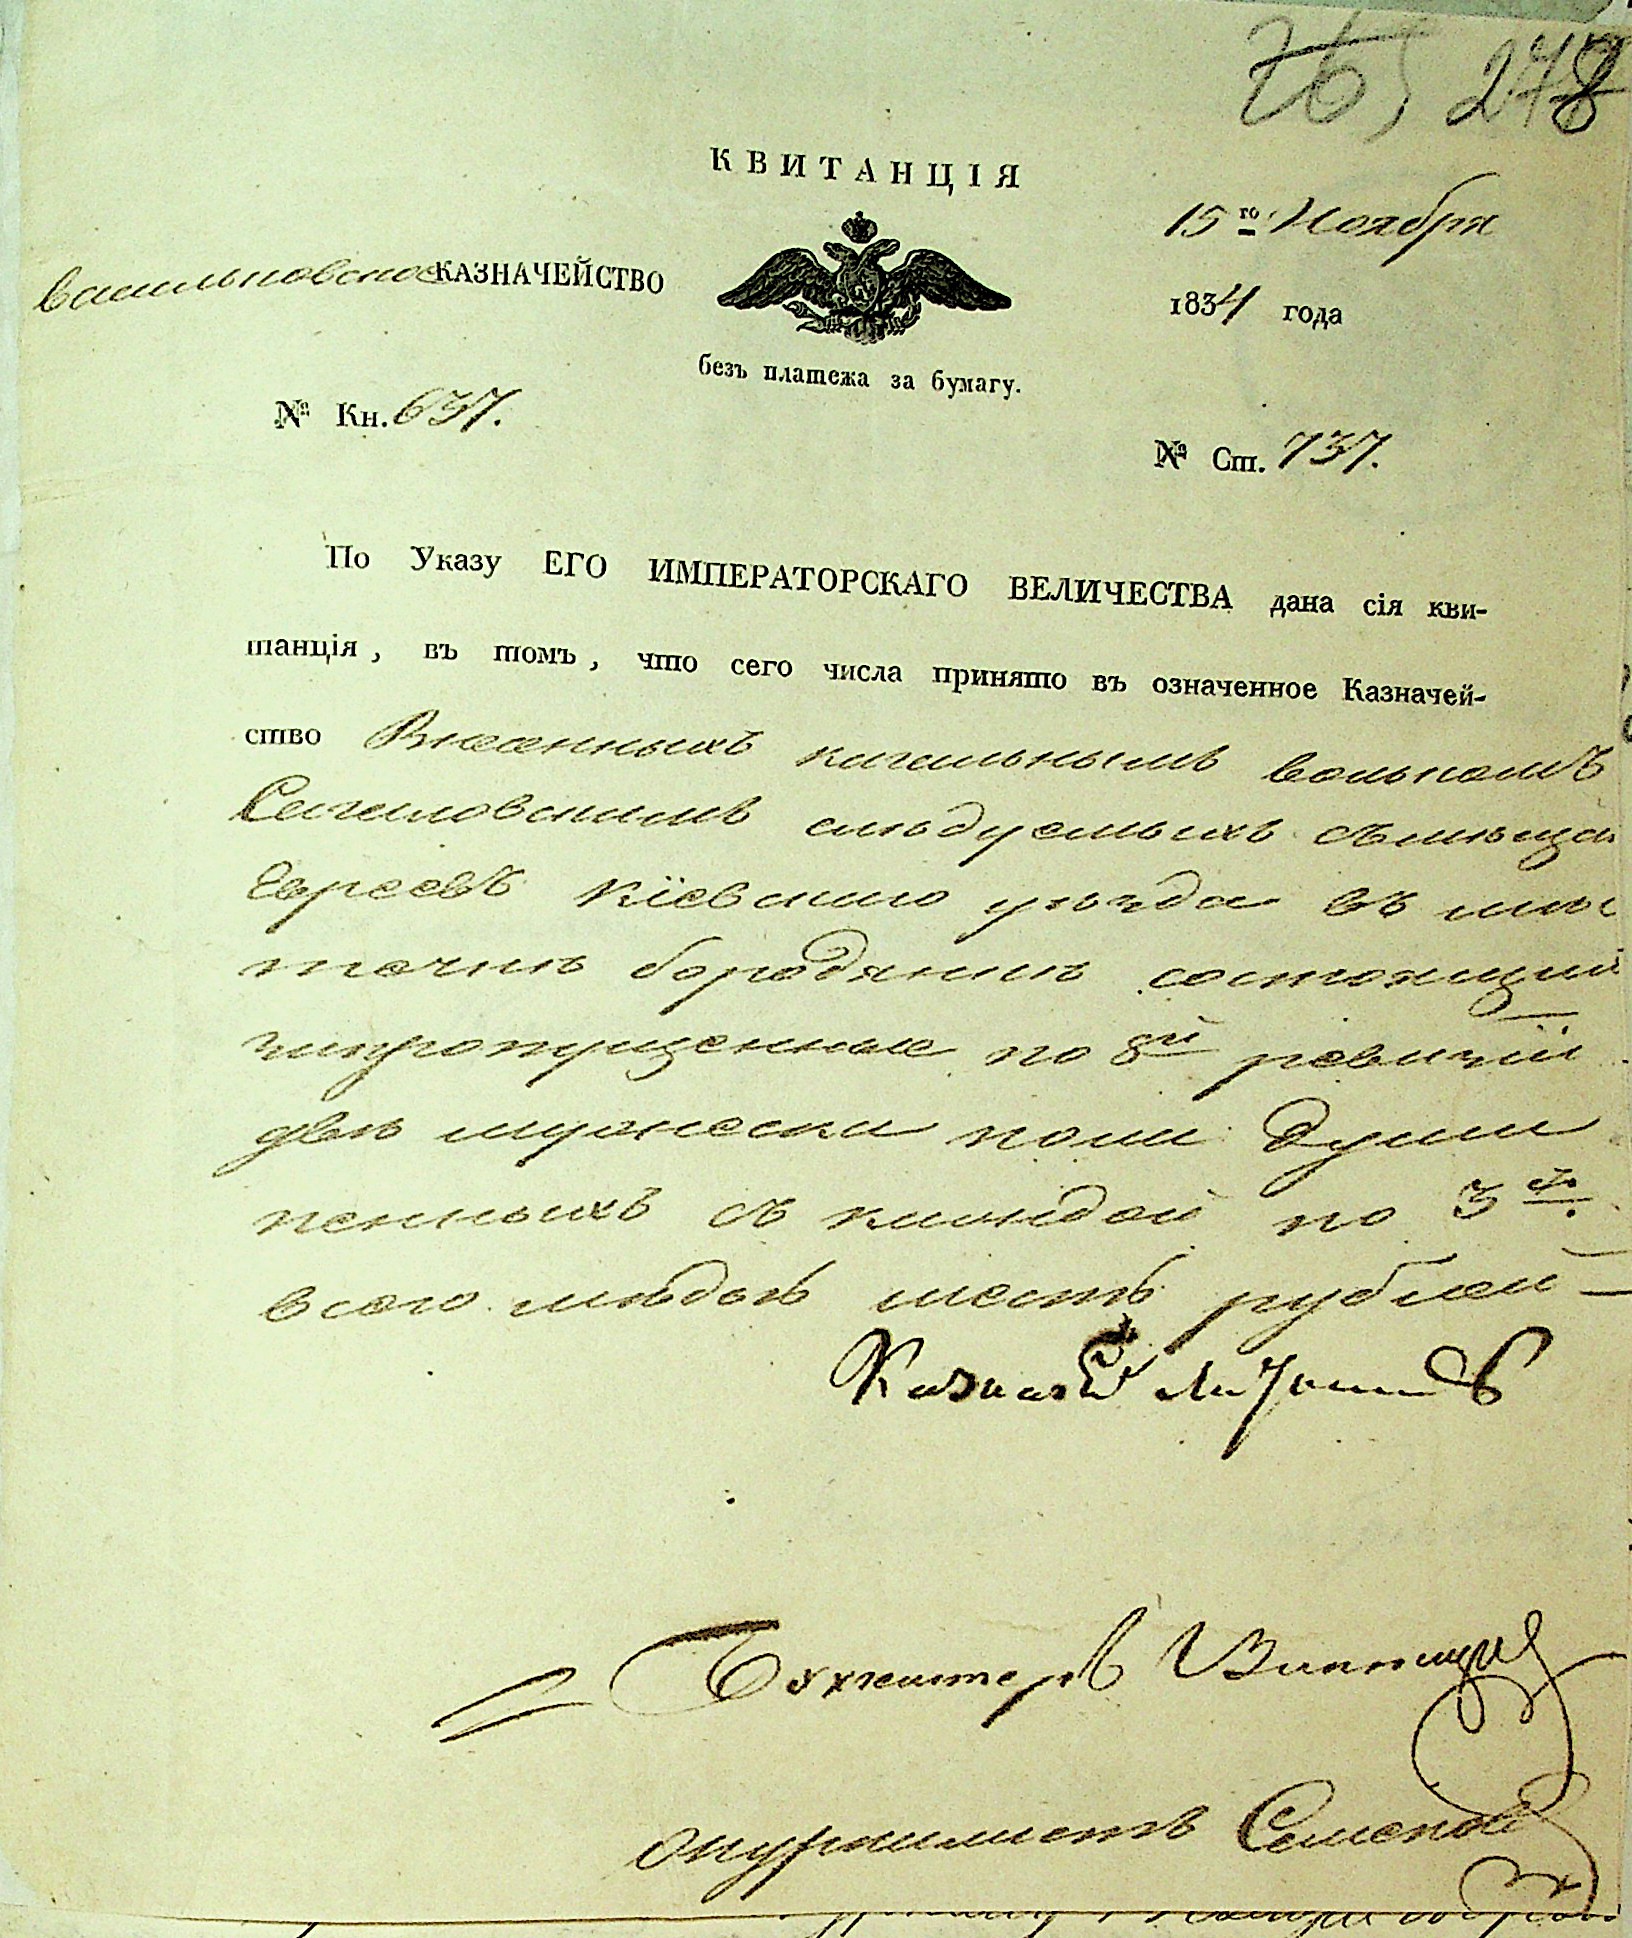 278
КВИТАНЦІЯ
15го Ноября
васильковское КАЗНАЧЕЙСТВО
1834 года
безъ платежа за бумагу.
№ Кн. 637.
№ Ст. 737.
По Указу ЕГО ИМПЕРАТОРСКАГО ВЕЛИЧЕСТВА дана сія кви-
танція, въ томъ, что сего числа принято въ означенное Казначей-
ство Внесенныхъ кагальнымъ волькомъ
Сегаловскимъ слѣдуемыхъ съ мѣщан
Евреевъ Кіевскаго уѣзда въ мѣс
течкѣ бородянкѣ состоящий
за пропущенные по 8й ревизіи
двѣ мужеска пола души
пенныхъ съ каждой по 3
всего мѣдью шесть рублей
Казначей
Бухгалтеръ
Журналистъ Семенов